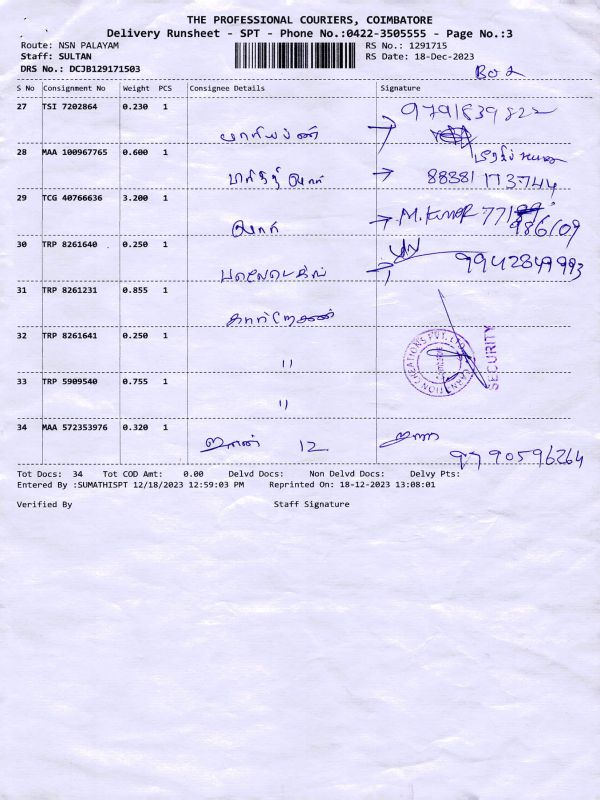 THE PROFESSIONAL COURIERS, COIMBATORE
Delivery Runsheet - SPT - Phone No.:0422-3505555 - Page No.:3
Route: NSN PALAYAM RS No.: 1291715
Staff: SULTAN RS Date: 18-Dec-2023
DRS No.: DCJB129171503
S No Consignment No Weight PCS Consignee Details Signature
27 TSI 7202864 0.230 1 9791839822
28 MAA 100967765 0.600 1
88381 173744
29 TCG 40766636 3.200 1 M. Kumar
986109
30 TRP 8261640 0.250 1
9942849993
31 TRP 8261231 0.855 1
32 TRP 8261641 0.250 1 "
CREATIONS PVT. LTD. SECURITY
33 TRP 5909540 0.755 1 "
34 MAA 572353976 0.320 1 12
9790596264
Tot Docs: 34 Tot COD Amt: 0.00 Delvd Docs: Non Delvd Docs: Delvy Pts:
Entered By :SUMATHISPT 12/18/2023 12:59:03 PM Reprinted On: 18-12-2023 13:08:01
Verified By Staff Signature